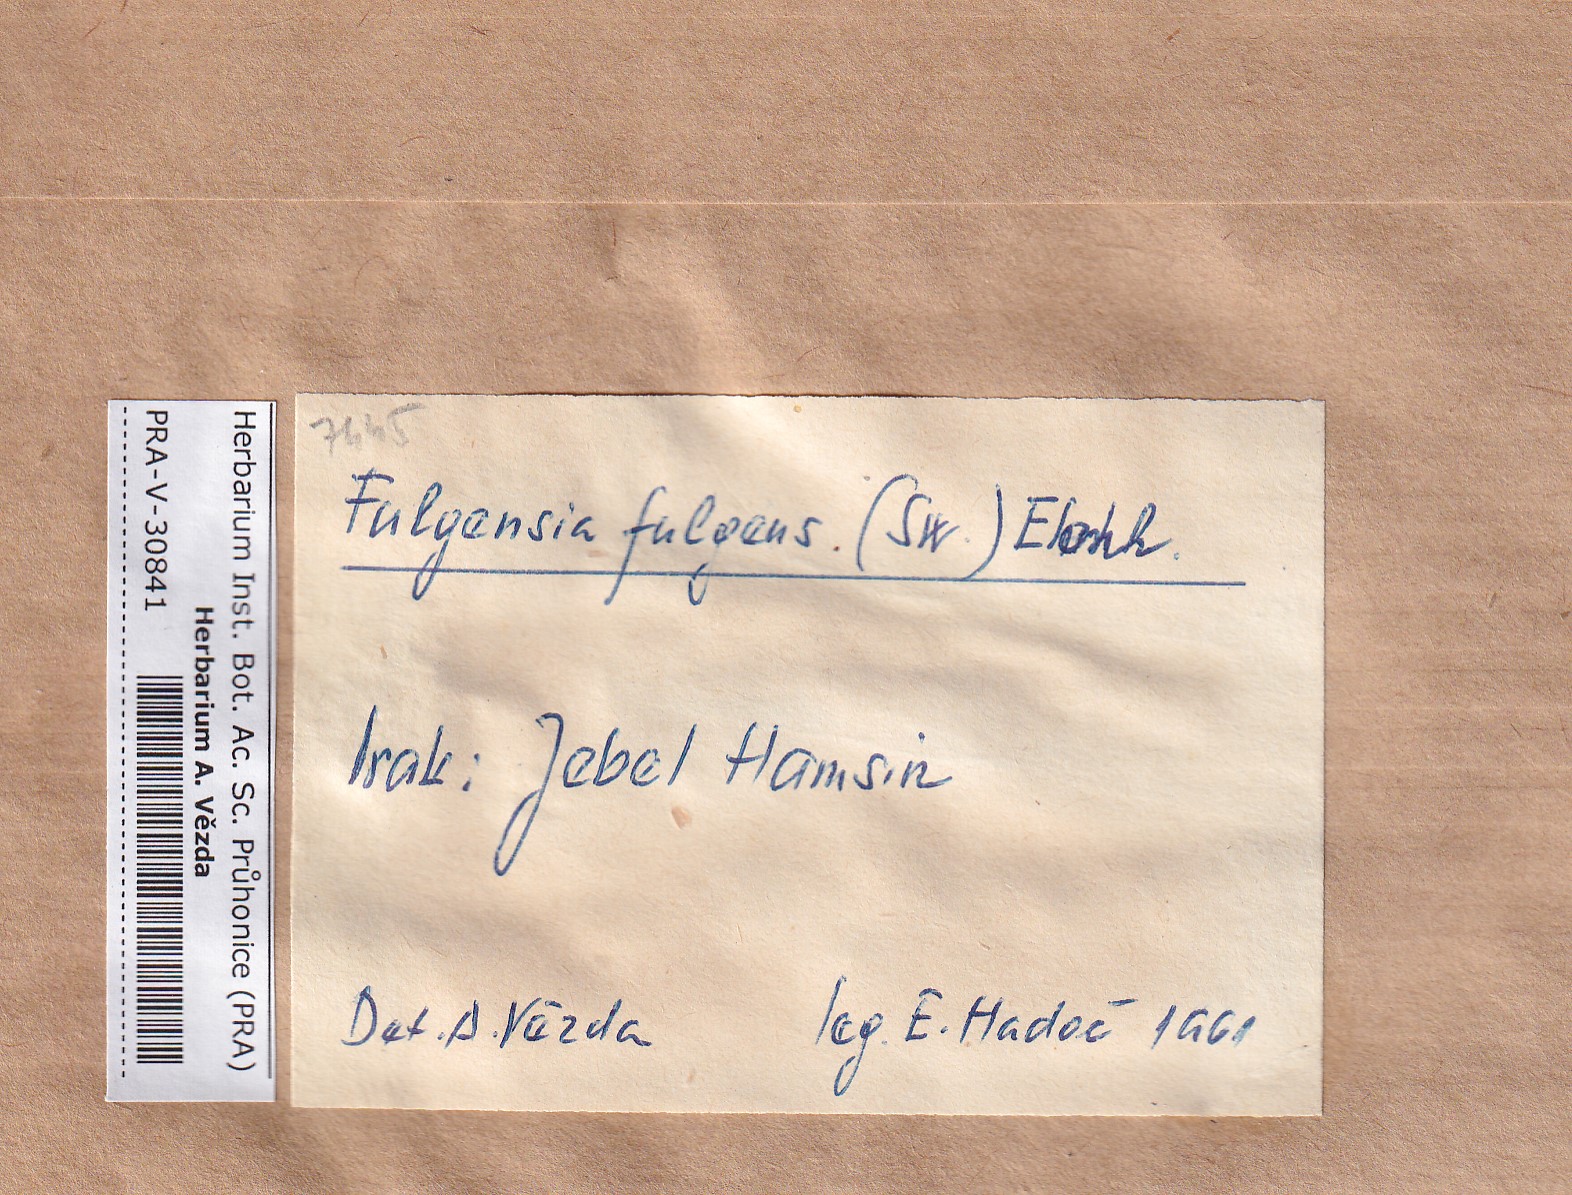 Herbarium Inst. Bot. Ac. Sc. Průhonice (PRA)
Herbarium A. Vězda
PRA-V-30841
7445
Fulgensia fulgens. (Sw.) Elenk.
Irak: Jebel Hamsin
Det. A. Vězda leg. E. Hadač 1961